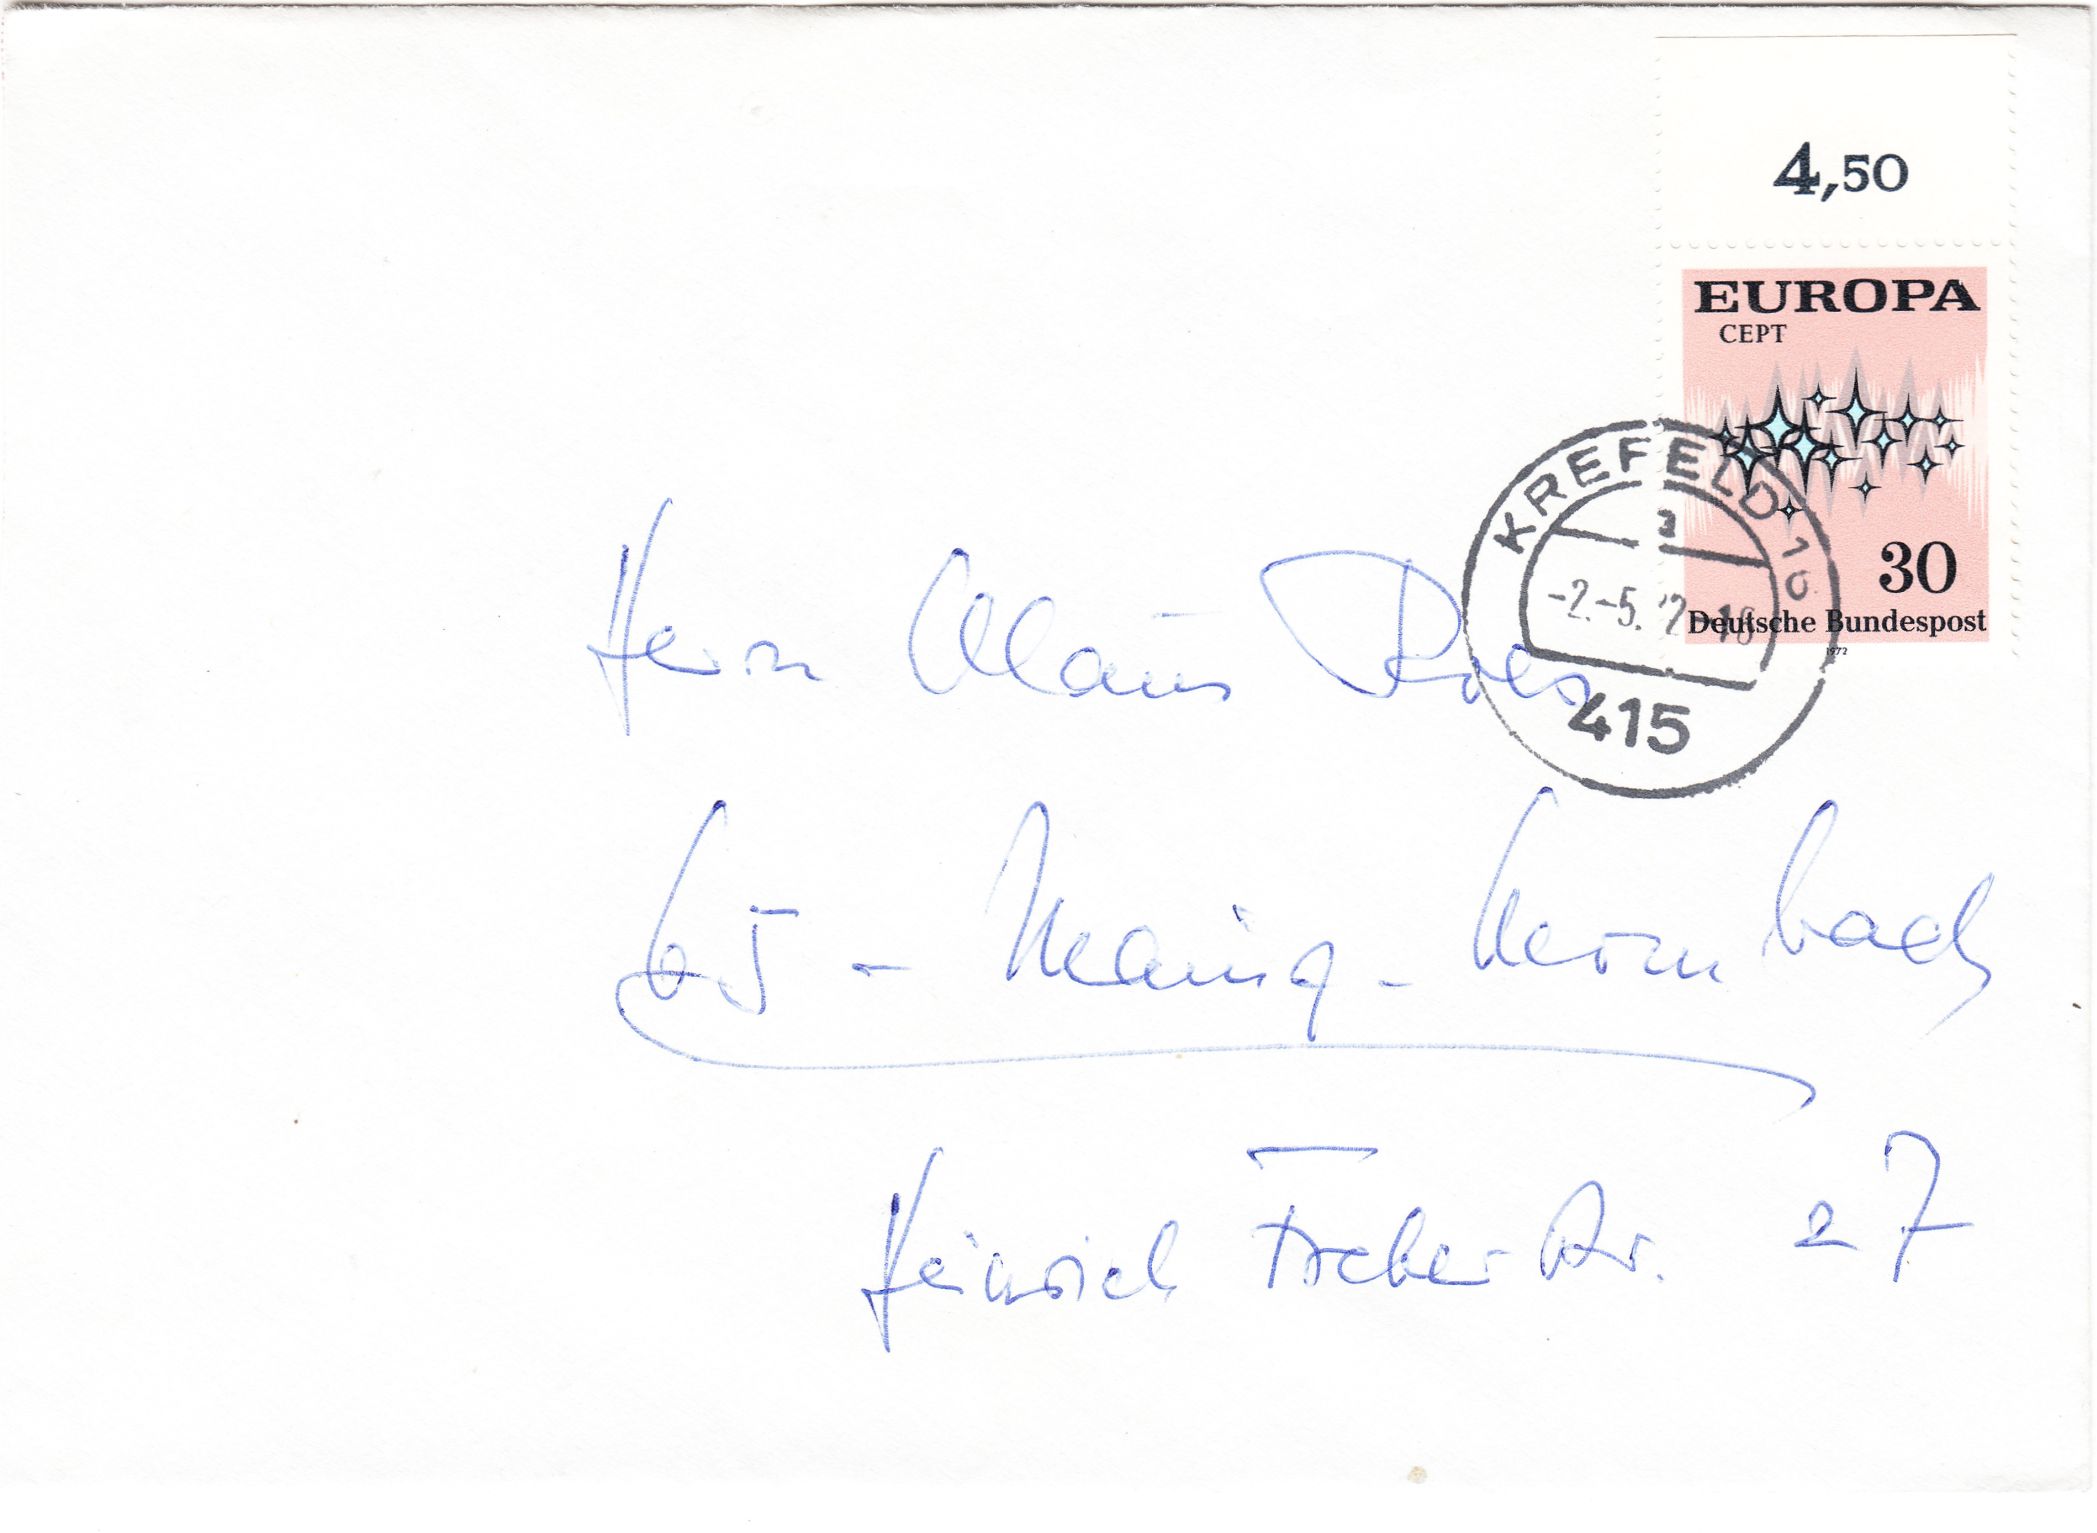 4,50
EUROPA
CEPT
30
Deutsche Bundespost
1972
KREFELD 10
a
-2.-5.72-18
415
Herrn Claus
65 - Mainz - Mombach
Heinrich -Str. 27